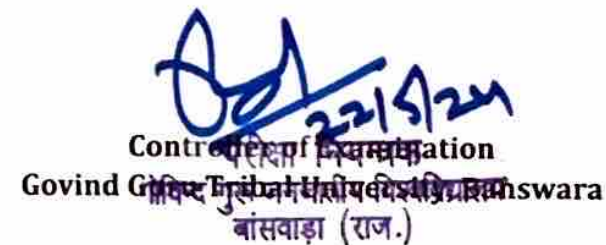 22/5/24
Controller of Examination
परीक्षा नियन्त्रक
Govind Guru Tribal University, Banswara
गोविन्द गुरु जनजातीय विश्वविद्यालय
बांसवाड़ा (राज.)